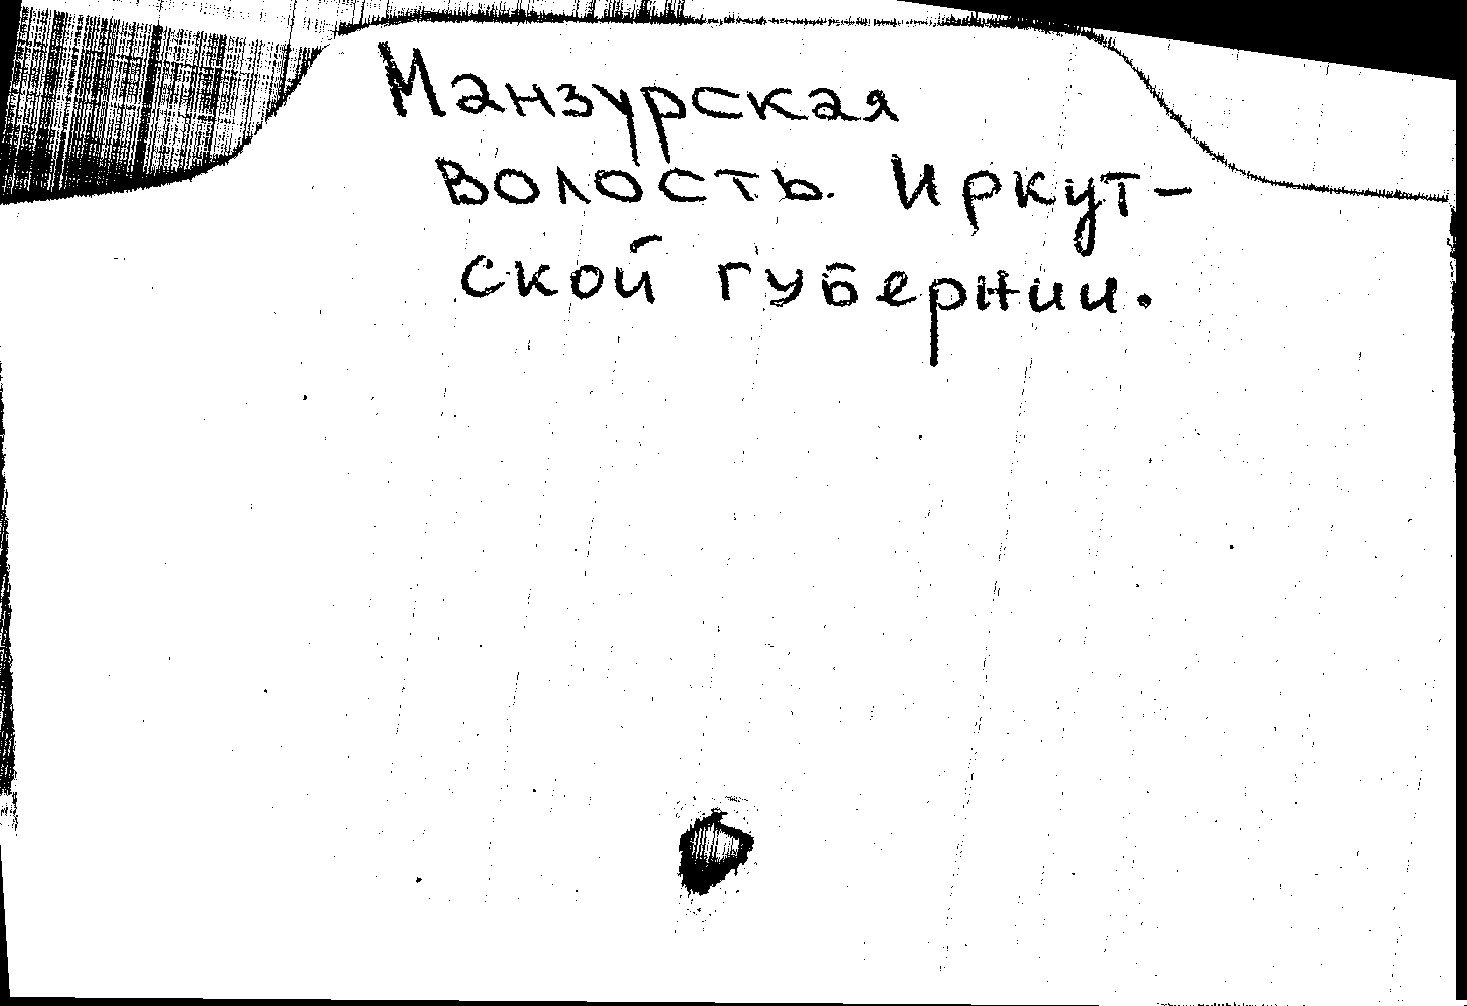 Манзурская
волость Иркут-
ской губернии.